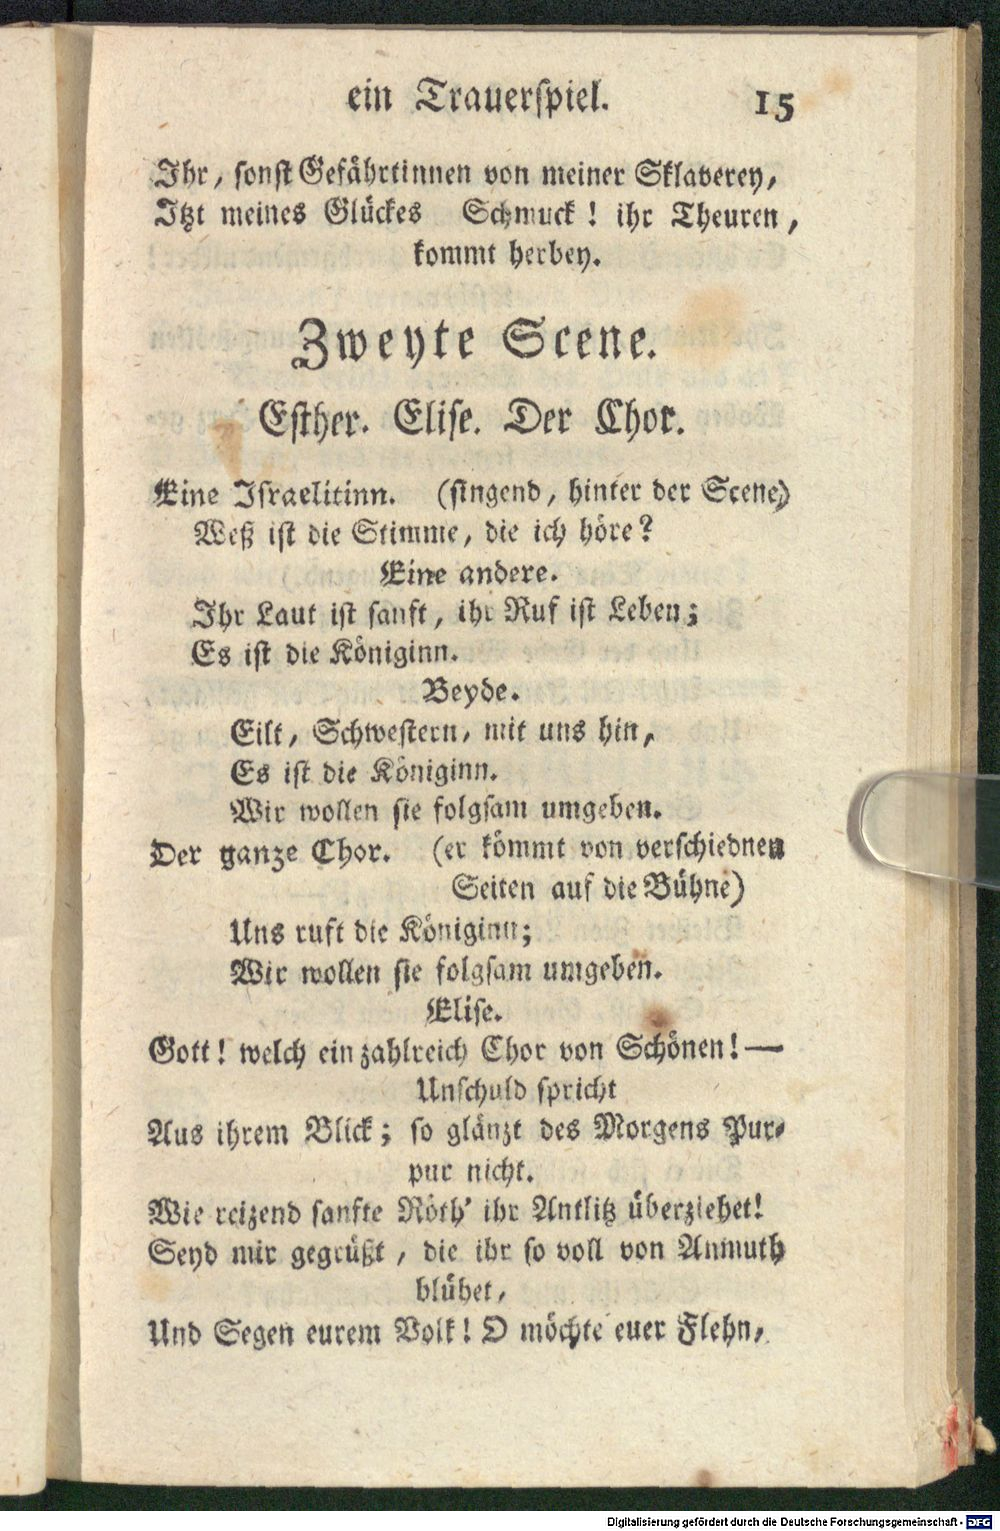 ein Trauerspiel. 15
Ihr, sonst Gefährtinnen von meiner Sklaverey,
Itzt meines Glückes Schmuck! ihr Theuren,
kommt herbey.
Zweyte Scene.
Esther. Elise. Der Chor.
Eine Israelitinn. (singend, hinter der Scene)
Weß ist die Stimme, die ich höre?
Eine andere.
Ihr Laut ist sanft, ihr Ruf ist Leben;
Es ist die Königinn.
Beyde.
Eilt, Schwestern, mit uns hin,
Es ist die Königinn.
Wir wollen sie folgsam umgeben.
Der ganze Chor. (er kömmt von verschiednen
Seiten auf die Bühne)
Uns ruft die Königinn;
Wir wollen sie folgsam umgeben.
Elise.
Gott! welch ein zahlreich Chor von Schönen!—
Unschuld spricht
Aus ihrem Blick; so glänzt des Morgens Pur-
pur nicht.
Wie reizend sanfte Röth' ihr Antlitz überziehet!
Seyd mir gegrüßt, die ihr so voll von Anmuth
blühet,
Und Segen eurem Volk! O möchte euer Flehn,
Digitalisierung gefördert durch die Deutsche Forschungsgemeinschaft - DFG